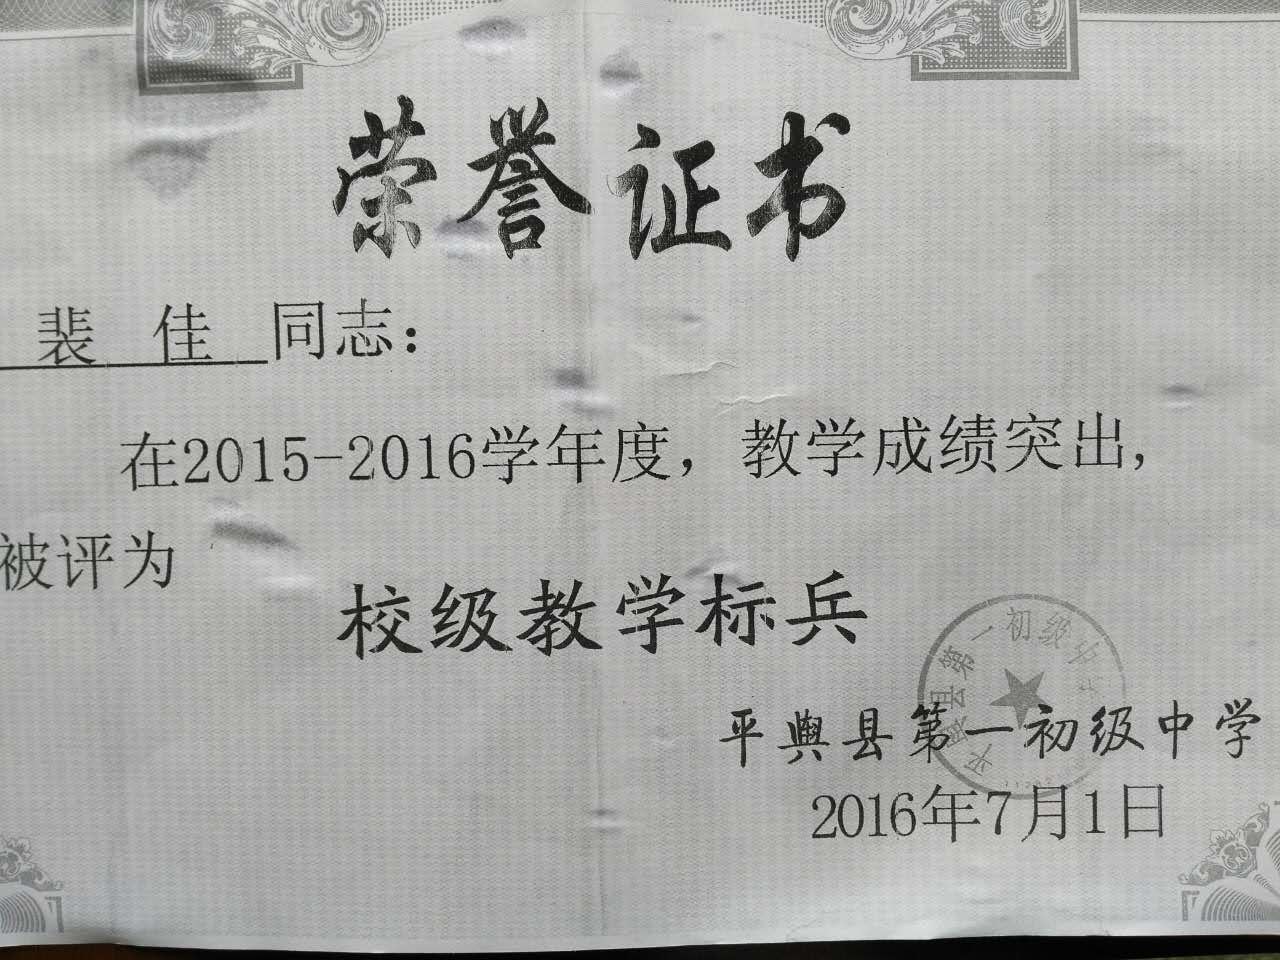 荣誉证书
裴佳同志：
在2015-2016学年度，教学成绩突出，
被评为
校级教学标兵
平舆县第一初级中学
平舆县第一初级中学
2016年7月1日